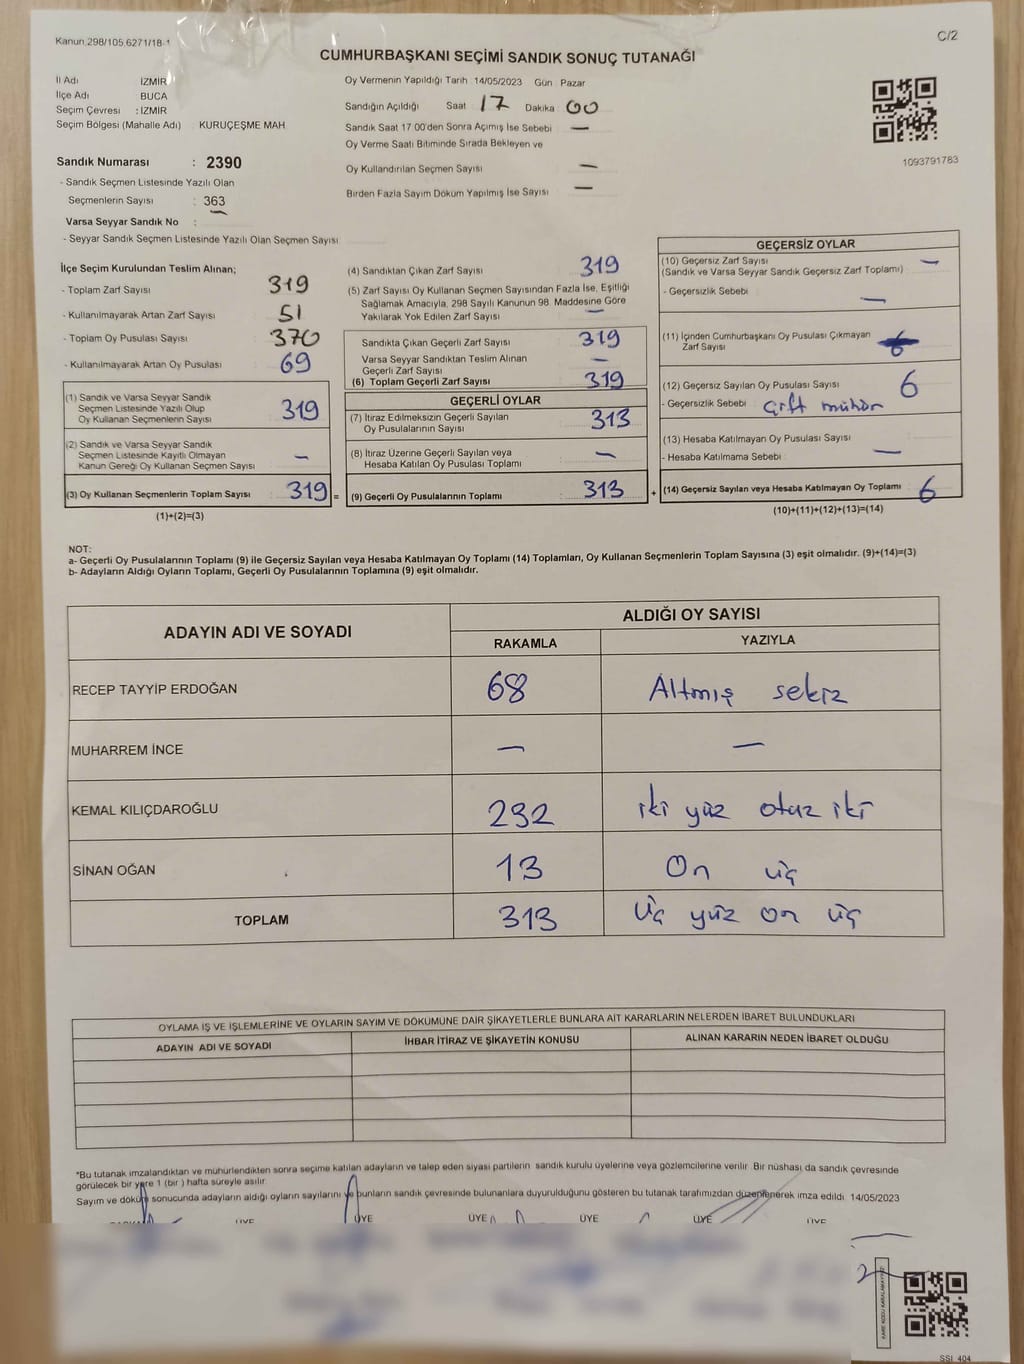 Kanun 298/105,6271/18-1
C/2
CUMHURBAŞKANI SEÇİMİ SANDIK SONUÇ TUTANAĞI
İl Adı İZMİR
İlçe Adı BUCA
Seçim Çevresi : İZMİR
Seçim Bölgesi (Mahalle Adı) KURUÇEŞME MAH
Oy Vermenin Yapıldığı Tarih 14/05/2023 Gün Pazar
Sandığın Açıldığı Saat 17 Dakika 00
Sandık Saat 17 00'den Sonra Açımış İse Sebebi —
Oy Verme Saati Bitiminde Sırada Bekleyen ve
Oy Kullandırılan Seçmen Sayısı —
Birden Fazla Sayım Döküm Yapılmış İse Sayısı —
1093791783
Sandık Numarası : 2390
- Sandık Seçmen Listesinde Yazılı Olan
Seçmenlerin Sayısı : 363
Varsa Seyyar Sandık No :
- Seyyar Sandık Seçmen Listesinde Yazılı Olan Seçmen Sayısı
İlçe Seçim Kurulundan Teslim Alınan;
- Toplam Zarf Sayısı 319
- Kullanılmayarak Artan Zarf Sayısı 51
- Toplam Oy Pusulası Sayısı 370
- Kullanılmayarak Artan Oy Pusulası 69
(1) Sandık ve Varsa Seyyar Sandık
Seçmen Listesinde Yazılı Olup
Oy Kullanan Seçmenlerin Sayısı 319
(2) Sandık ve Varsa Seyyar Sandık
Seçmen Listesinde Kayıtlı Olmayan
Kanun Gereği Oy Kullanan Seçmen Sayısı —
(3) Oy Kullanan Seçmenlerin Toplam Sayısı 319 =
(1)+(2)=(3)
(4) Sandıktan Çıkan Zarf Sayısı 319
(5) Zarf Sayısı Oy Kullanan Seçmen Sayısından Fazla İse, Eşitliği
Sağlamak Amacıyla, 298 Sayılı Kanunun 98. Maddesine Göre
Yakılarak Yok Edilen Zarf Sayısı —
Sandıkta Çıkan Geçerli Zarf Sayısı 319
Varsa Seyyar Sandıktan Teslim Alınan
Geçerli Zarf Sayısı —
(6) Toplam Geçerli Zarf Sayısı 319
GEÇERLİ OYLAR
(7) İtiraz Edilmeksizin Geçerli Sayılan
Oy Pusulalarının Sayısı 313
(8) İtiraz Üzerine Geçerli Sayılan veya
Hesaba Katılan Oy Pusulası Toplamı —
(9) Geçerli Oy Pusulalarının Toplamı 313 +
GEÇERSİZ OYLAR
(10) Geçersiz Zarf Sayısı —
(Sandık ve Varsa Seyyar Sandık Geçersiz Zarf Toplamı)
- Geçersizlik Sebebi —
(11) İçinden Cumhurbaşkanı Oy Pusulası Çıkmayan
Zarf Sayısı
(12) Geçersiz Sayılan Oy Pusulası Sayısı 6
- Geçersizlik Sebebi Çift mühür
(13) Hesaba Katılmayan Oy Pusulası Sayısı
- Hesaba Katılmama Sebebi —
(14) Geçersiz Sayılan veya Hesaba Katılmayan Oy Toplamı 6
(10)+(11)+(12)+(13)=(14)
NOT:
a- Geçerli Oy Pusulalarının Toplamı (9) ile Geçersiz Sayılan veya Hesaba Katılmayan Oy Toplamı (14) Toplamları, Oy Kullanan Seçmenlerin Toplam Sayısına (3) eşit olmalıdır. (9)+(14)=(3)
b- Adayların Aldığı Oyların Toplamı, Geçerli Oy Pusulalarının Toplamına (9) eşit olmalıdır.
ADAYIN ADI VE SOYADI
ALDIĞI OY SAYISI
RAKAMLA YAZIYLA
RECEP TAYYİP ERDOĞAN 68 Altmış sekiz
MUHARREM İNCE — —
KEMAL KILIÇDAROĞLU 232 iki yüz otuz iki
SİNAN OĞAN 13 On üç
TOPLAM 313 Üç yüz on üç
OYLAMA İŞ VE İŞLEMLERİNE VE OYLARIN SAYIM VE DÖKÜMÜNE DAİR ŞİKAYETLERLE BUNLARA AİT KARARLARIN NELERDEN İBARET BULUNDUKLARI
ADAYIN ADI VE SOYADI İHBAR İTİRAZ VE ŞİKAYETİN KONUSU ALINAN KARARIN NEDEN İBARET OLDUĞU
*Bu tutanak imzalandıktan ve mühürlendikten sonra seçime katılan adayların ve talep eden siyasi partilerin sandık kurulu üyelerine veya gözlemcilerine verilir. Bir nüshası da sandık çevresinde
görülecek bir yere 1 (bir) hafta süreyle asılır.
Sayım ve döküm sonucunda adayların aldığı oyların sayılarını ve bunların sandık çevresinde bulunanlara duyurulduğunu gösteren bu tutanak tarafımızdan düzenlenerek imza edildi. 14/05/2023
ÜYE ÜYE ÜYE ÜYE ÜYE ÜYE
SSI 404